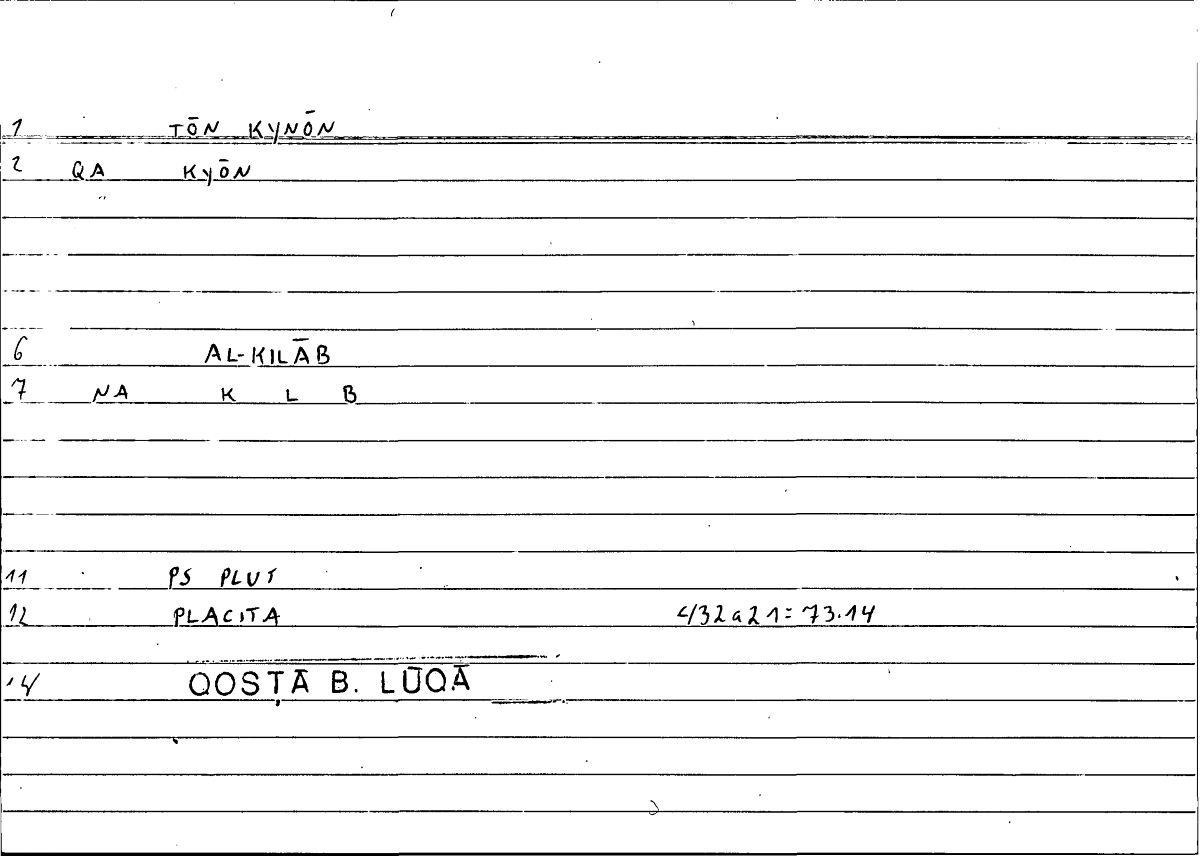 1 TŌN KYNŌN
2 QA KYŌN
6 AL-KILĀB
7 NA K L B
11 PS PLUT
12 PLACITA 432a21=73.14
14 QOSṬĀ B. LŪQĀ